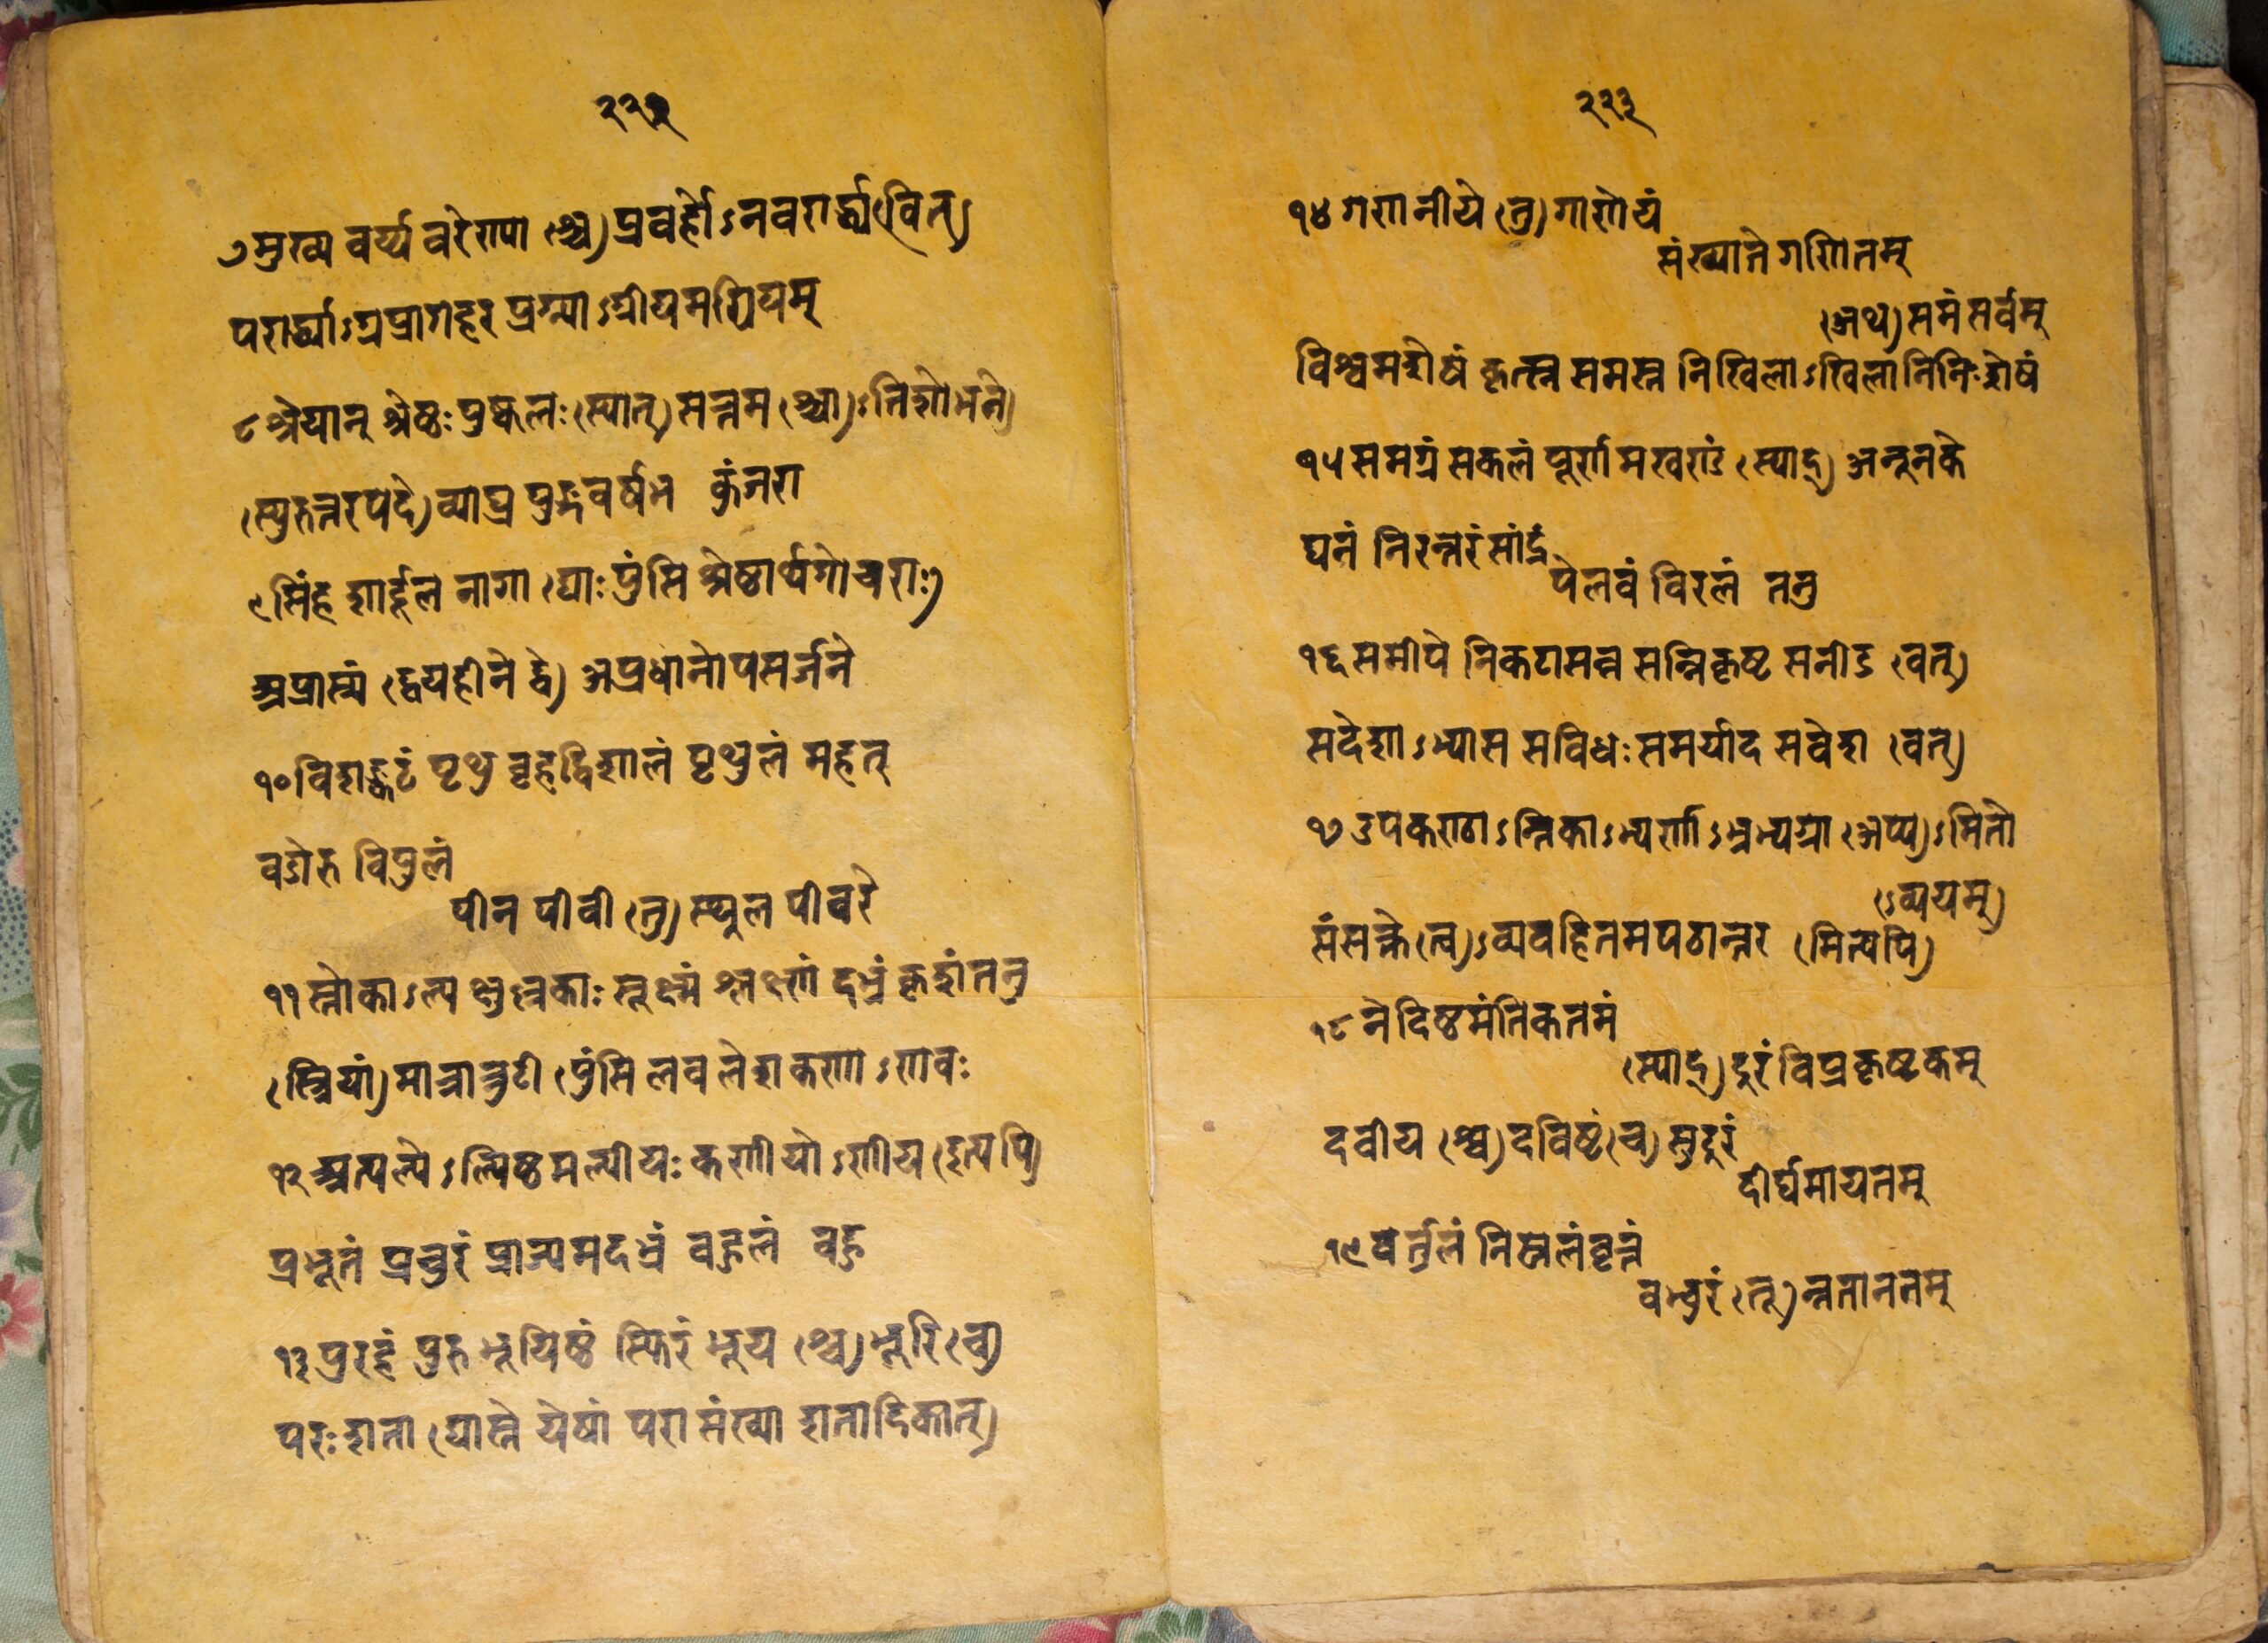 २२२
७ मुख्य वर्य्य वरेण्या (श्च) प्रवर्होऽनवरार्द्ध्य (वत्)
परार्द्ध्याऽग्रप्राग्रहर प्राग्र्याऽग्रीयमग्रियम्
८ श्रेयान् श्रेष्ठः पुष्कलः (स्यात्) सत्तम (श्चा)ऽतिशोभने
(स्युरुत्तरपदे) व्याघ्र पुङ्गवर्षभ कुंजरा
९ सिंह शार्दूल नागा (द्याः पुंसि श्रेष्ठार्थगोचराः)
अप्राग्र्यं (द्वयहीने द्वे) अप्रधानोपसर्जने
१० विशङ्कटं पृथु बृहद्विशालं पृथुलं महत्
वड्रोरु विपुलं
पीन पीवी (तु) स्थुल पीवरे
११ स्तोकाऽल्प क्षुल्लकाः सूक्ष्मं श्लक्ष्णं दभ्रं कृशं तनु
(स्त्रियां) मात्रा त्रुटी (पुंसि लव लेश कणाऽणवः
१२ अत्यल्पेऽल्पिष्ठमल्पीयः कणीयोऽणीय (इत्यपि)
प्रभूतं प्रचुरं प्राज्यमदभ्रं बहुलं बहु
१३ पुरहं पुरु भूयिष्ठं स्फिरं भूय (श्च) भूरि (च)
परः शता (द्यास्ते येषां परा संख्या शतादिकात्)
२२३
१४ गणनीये (तु) गाणेयं
संख्याते गणितम्
(अथ) समं सर्वम्
विश्वमशेषं कृत्स्न समस्त निखिलाऽखिलानि निःशेषं
१५ समग्रं सकलं पूर्णमखण्डं (स्याद्) अनूनके
घनं निरन्तरं सांद्रं
पेलवं विरलं तनु
१६ समीपे निकटासन्न सन्निकृष्ट सनीड (वत्)
सदेशाऽभ्यास सविधः समर्याद सवेश (वत्)
१७ उपकण्ठाऽन्तिकाऽभ्यर्णाऽभ्यग्रा (अप्य)ऽभितो
(ऽव्ययम्)
संसक्ते (त्व)ऽव्यवहितमपठान्तर (मित्यपि)
१८ नेदिष्ठमंतिकतमं
(स्याद्) दुरं विप्रकृष्टकम्
दवीय (श्च) दविष्टं (च) सुदुरं
दीर्घमायतम्
१९ वर्तुलं निस्तलं वृत्तं
बन्धुरं (तू)न्नतानतम्